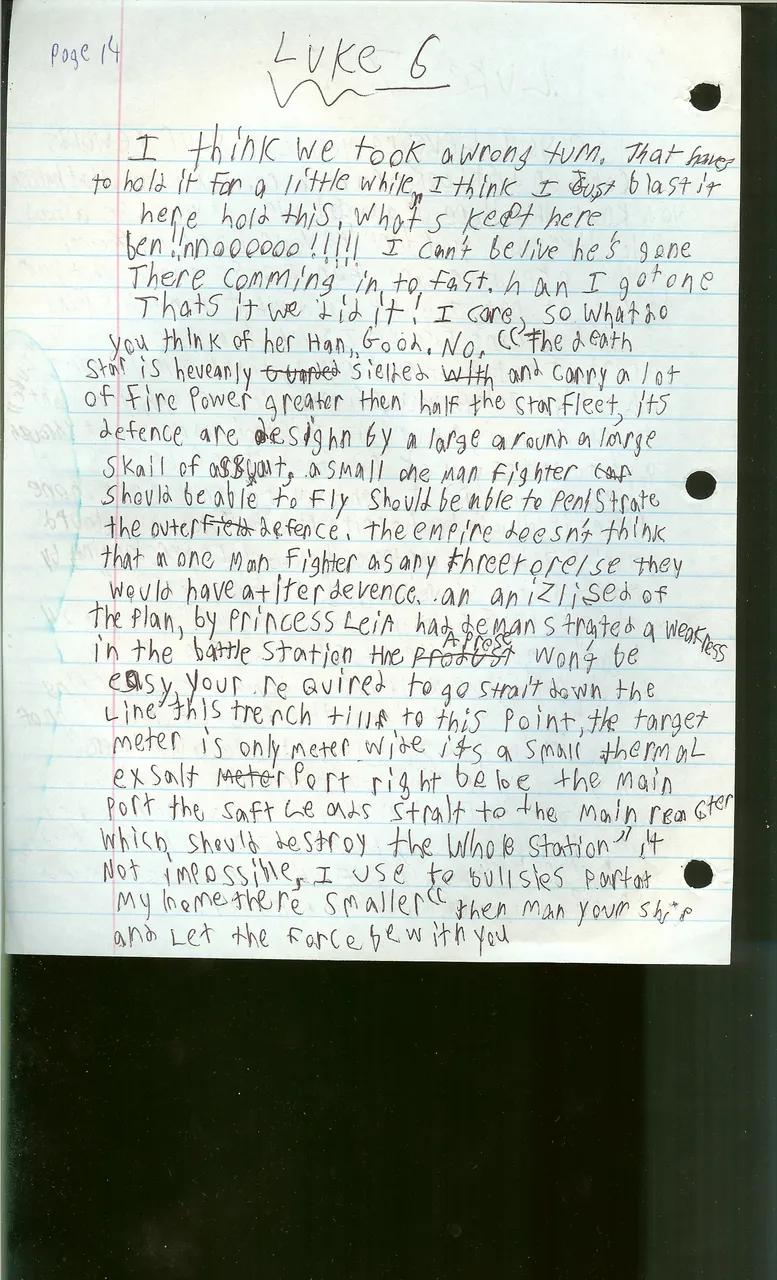 Page 14
Luke 6
I think we took a wrong turn. That haves
to hold it for a little while, I think I Just blast it
here hold this. What's kept here
ben!!nnoooooo!!!!! I can't belive he's gone
There comming in to fast. han I got one
Thats it we did it! I care, so what do
you think of her Han, Good. No. "The death
star is hevearly Guarded sielded with and carry a lot
of fire Power greater then half the star fleet, its
defence are designn by a large around a large
skail of assyalt, a small one man fighter can
should be able to fly should be able to penistrate
the outer Field defence. the empire doesn't think
that a one man fighter as any threet orelse they
would have a titer devence. an anizlised of
the Plan, by Princess Leia had demanstrated a weakness
in the battle station the Aprose won't be
easy, your required to go strait down the
Line this trench till to this point, the target
meter is only meter wide its a small thermal
exsalt meter Port right beloe the main
port the saft Leads strait to the main reacter
which should destroy the Whole station" it
Not impossible, I use to bullsies partat
My home there smaller" then man your ship
and Let the Force be with you